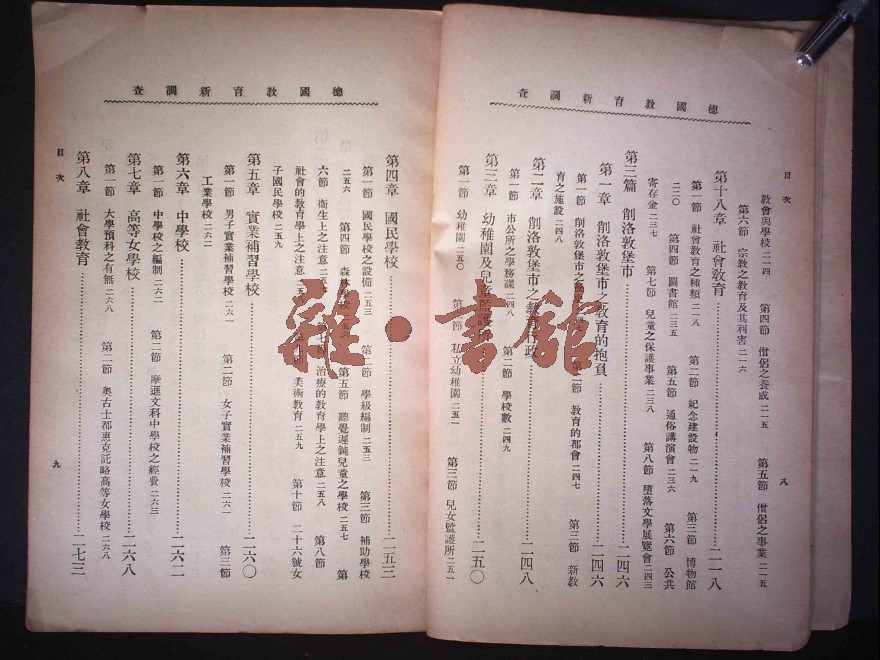 德國教育新調查
目次
教會與學校二一四 第四節 僧侶之養成二一五 第五節 僧侶之事業二一五
第六節 宗教之教育及其利害二一六
第十八章 社會教育……二一八
第一節 社會教育之種類二一八 第二節 紀念建設物二一九 第三節 博物館
二二〇 第四節 圖書館二三五 第五節 通俗講演會二三六 第六節 公共
寄存金二三七 第七節 兒童之保護事業二三八 第八節 墮落文學展覽會二四三
第三篇 削洛敦堡市……二四六
第一章 削洛敦堡市之教育的抱負……二四六
第一節 削洛敦堡市之 第二節 教育的都會二四七 第三節 新教
育之施設二四八
第二章 削洛敦堡市之教育行政……二四八
第一節 市公所之學務課二四八 第二節 學校數二四九
第三章 幼稚園及兒童監護所……二五〇
第一節 幼稚園二五〇 第二節 私立幼稚園二五一 第三節 兒女監護所二五一
八
德國教育新調查
第四章 國民學校……二五三
第一節 國民學校之設備二五三 第二節 學級編制二五三 第三節 補助學校
二五六 第四節 森林學校 第五節 聽覺遲鈍兒童之學校二五七 第
六節 衞生上之注意 治療的教育學上之注意二五八 第八節
社會的教育學上之注意二五八 美術教育二五九 第十節 二十六號女
子國民學校二五九
第五章 實業補習學校……二六〇
第一節 男子實業補習學校二六一 第二節 女子實業補習學校二六一 第三節
工業學校二六二
第六章 中學校……二六二
第一節 中學校之編制二六二 第二節 摩遜文科中學校之經費二六三
第七章 高等女學校……二六八
第一節 大學預科之有無二六八 第二節 奧古士都惠克託略高等女學校二六八
第八章 社會教育……二七三
目次
九
雜·書館